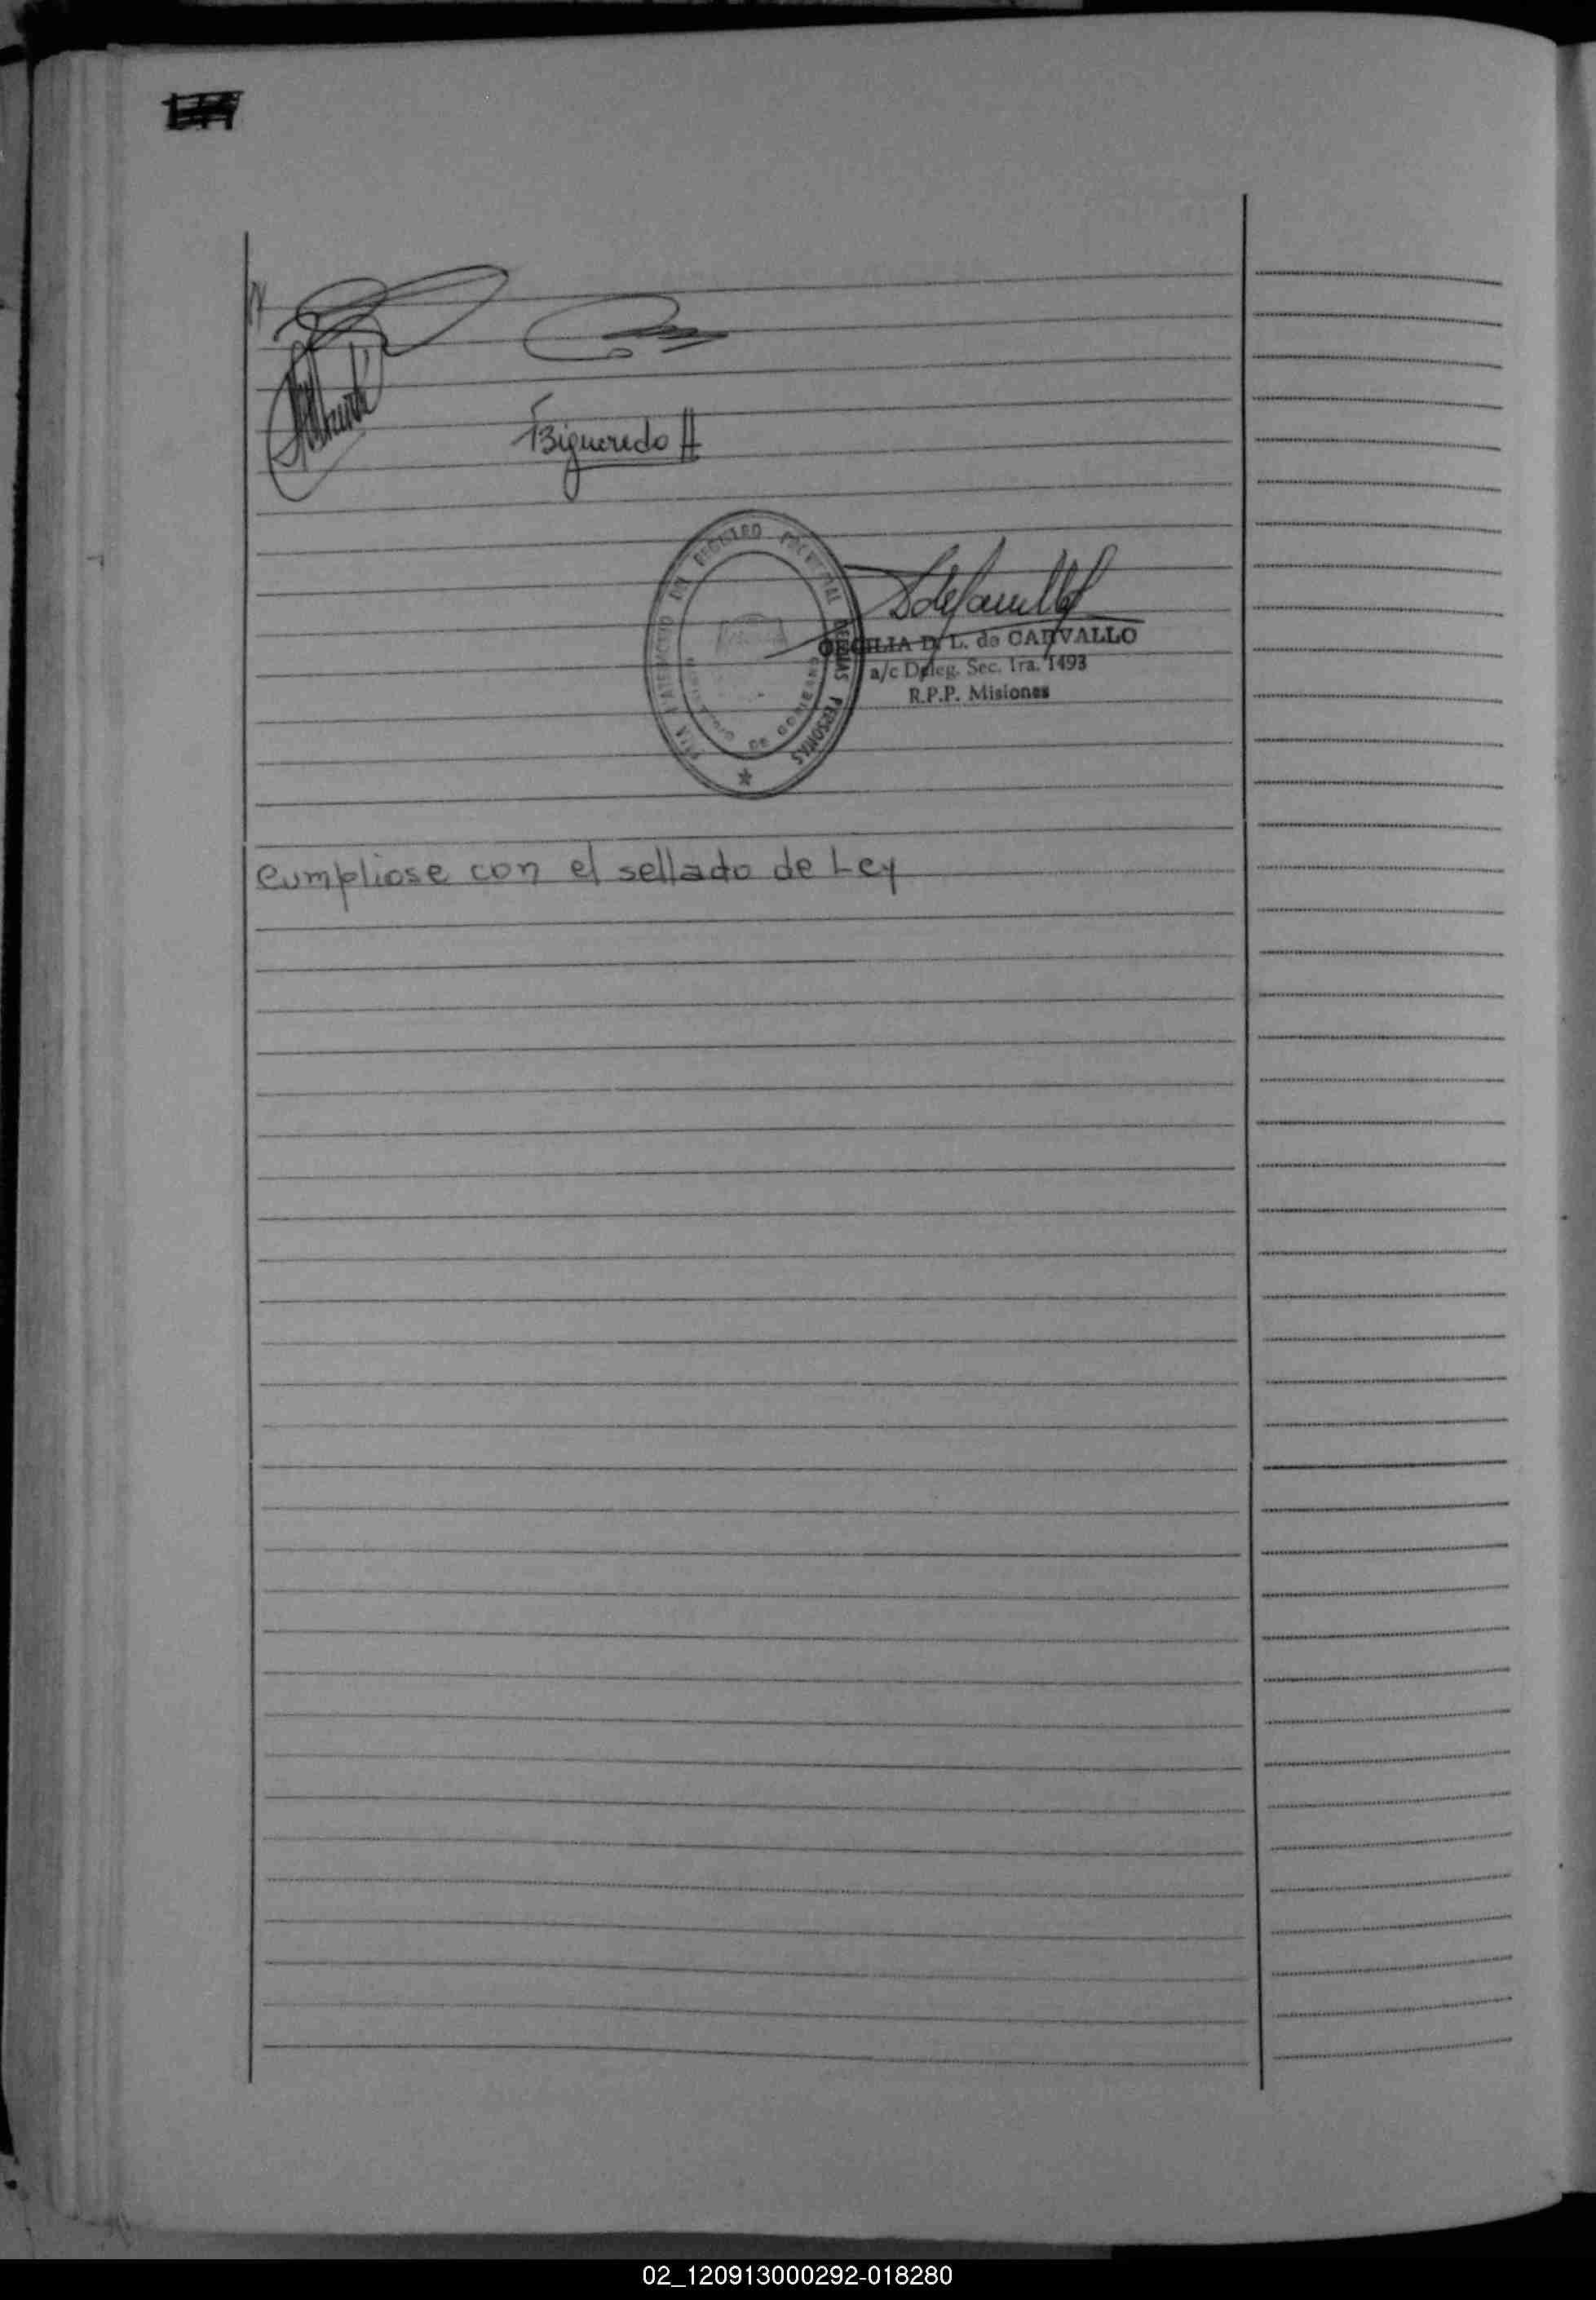 Figueredo H
REGISTRO PROVINCIAL DE LAS PERSONAS
MINISTERIO DE GOBIERNO
CECILIA D. L. de CARVALLO
a/c Deleg. Sec. 1ra. 1493
R.P.P. Misiones
Cumpliose con el sellado de Ley
02_120913000292-018280